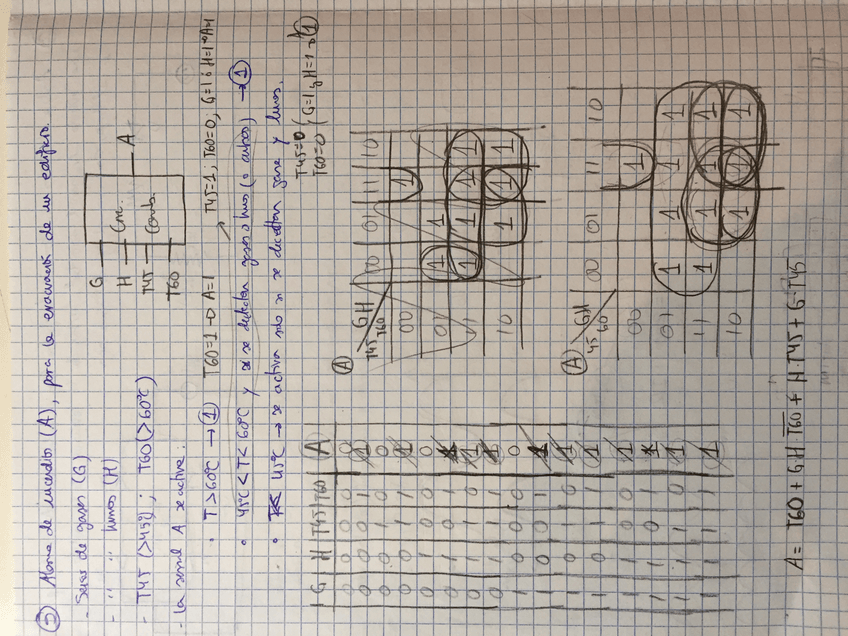 ⑤ Alarma de incendios (A), para la evacuación de un edificio.
- Sensor de gases (G)
- " " humos (H)
- T45 (>45º); T60 (>60ºC)
- La señal A se activa:
G
H
T45
T60
A
• T>60ºC → ① T60=1 → A=1
T45=1; T60=0; G=1 ó H=1 → A=1
• 45ºC < T < 60ºC y si se detectan gases o humos (o ambos) → ①
• T< 45ºC → se activa sólo si se detectan gases y humos.
T45=0
T60=0 (G=1 y H=1 → ①
G H T45 T60 A
0 0 0 0 0
0 0 0 1 1
0 0 1 0 0
0 0 1 1 1
0 1 0 0 0
0 1 0 1
0 1 1 0 1
0 1 1 1 1
1 0 0 0 0
1 0 0 1
1 0 1 0 1
1 0 1 1 1
1 1 0 0 1
1 1 0 1
1 1 1 0 1
1 1 1 1 1
Ⓐ
GH
T45 T60
00 01 11 10
00 1
01 1 1
11 1 1 1 1
10 1 1 1
Ⓐ
GH
45 60
00 01 11 10
00 1
01 1 1 1 1
11 1 1 1 1
10 1 1 1
A = T60 + GH T̅6̅0̅ + H·T45 + G·T45